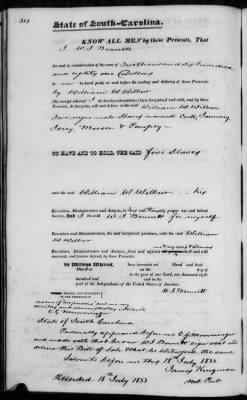 State of South-Carolina.
KNOW ALL MEN by these Presents, That
I W J Bennett
for and in consideration of the sum of Two thousand and six hundred
and eighty one Dollars
to me in hand paid, at and before the sealing and delivery of these Presents,
by William W Wilbur
(the receipt whereof I do hereby acknowledge) have bargained and sold, and by these
Presents, do bargain, sell and deliver to the said William W Wilbur
Five negro male Slaves named January
Jerry Moosa & Pompey
TO HAVE AND TO HOLD, THE SAID five slaves
unto the said William W Wilbur his
Executors, Administrators and Assigns, to his and their only proper use and behoof
forever. And I said W J Bennett for myself
Executors and Administrators, the said bargained premises, unto the said William
W Wilbur
Executors, Administrators and Assigns, from and against all persons shall and will
warrant, and forever defend, by these Presents.
In Witness Whereof, I have hereunto set Hand and Seal
Dated at on the day of
in the year of our Lord, one thousand eight
Hundred and and in the
year of the Independence of the United States of America.
W J Bennett
C G Memminger
State of South Carolina
Personally appeared before me C G Memminger
and made oath that he saw W J Bennett sign seal and
deliver this Bill of Sale that he witnessed the same
Sworn to before me this 18th July 1833
James Kingman
Not Pub
Recorded 18th July 1833